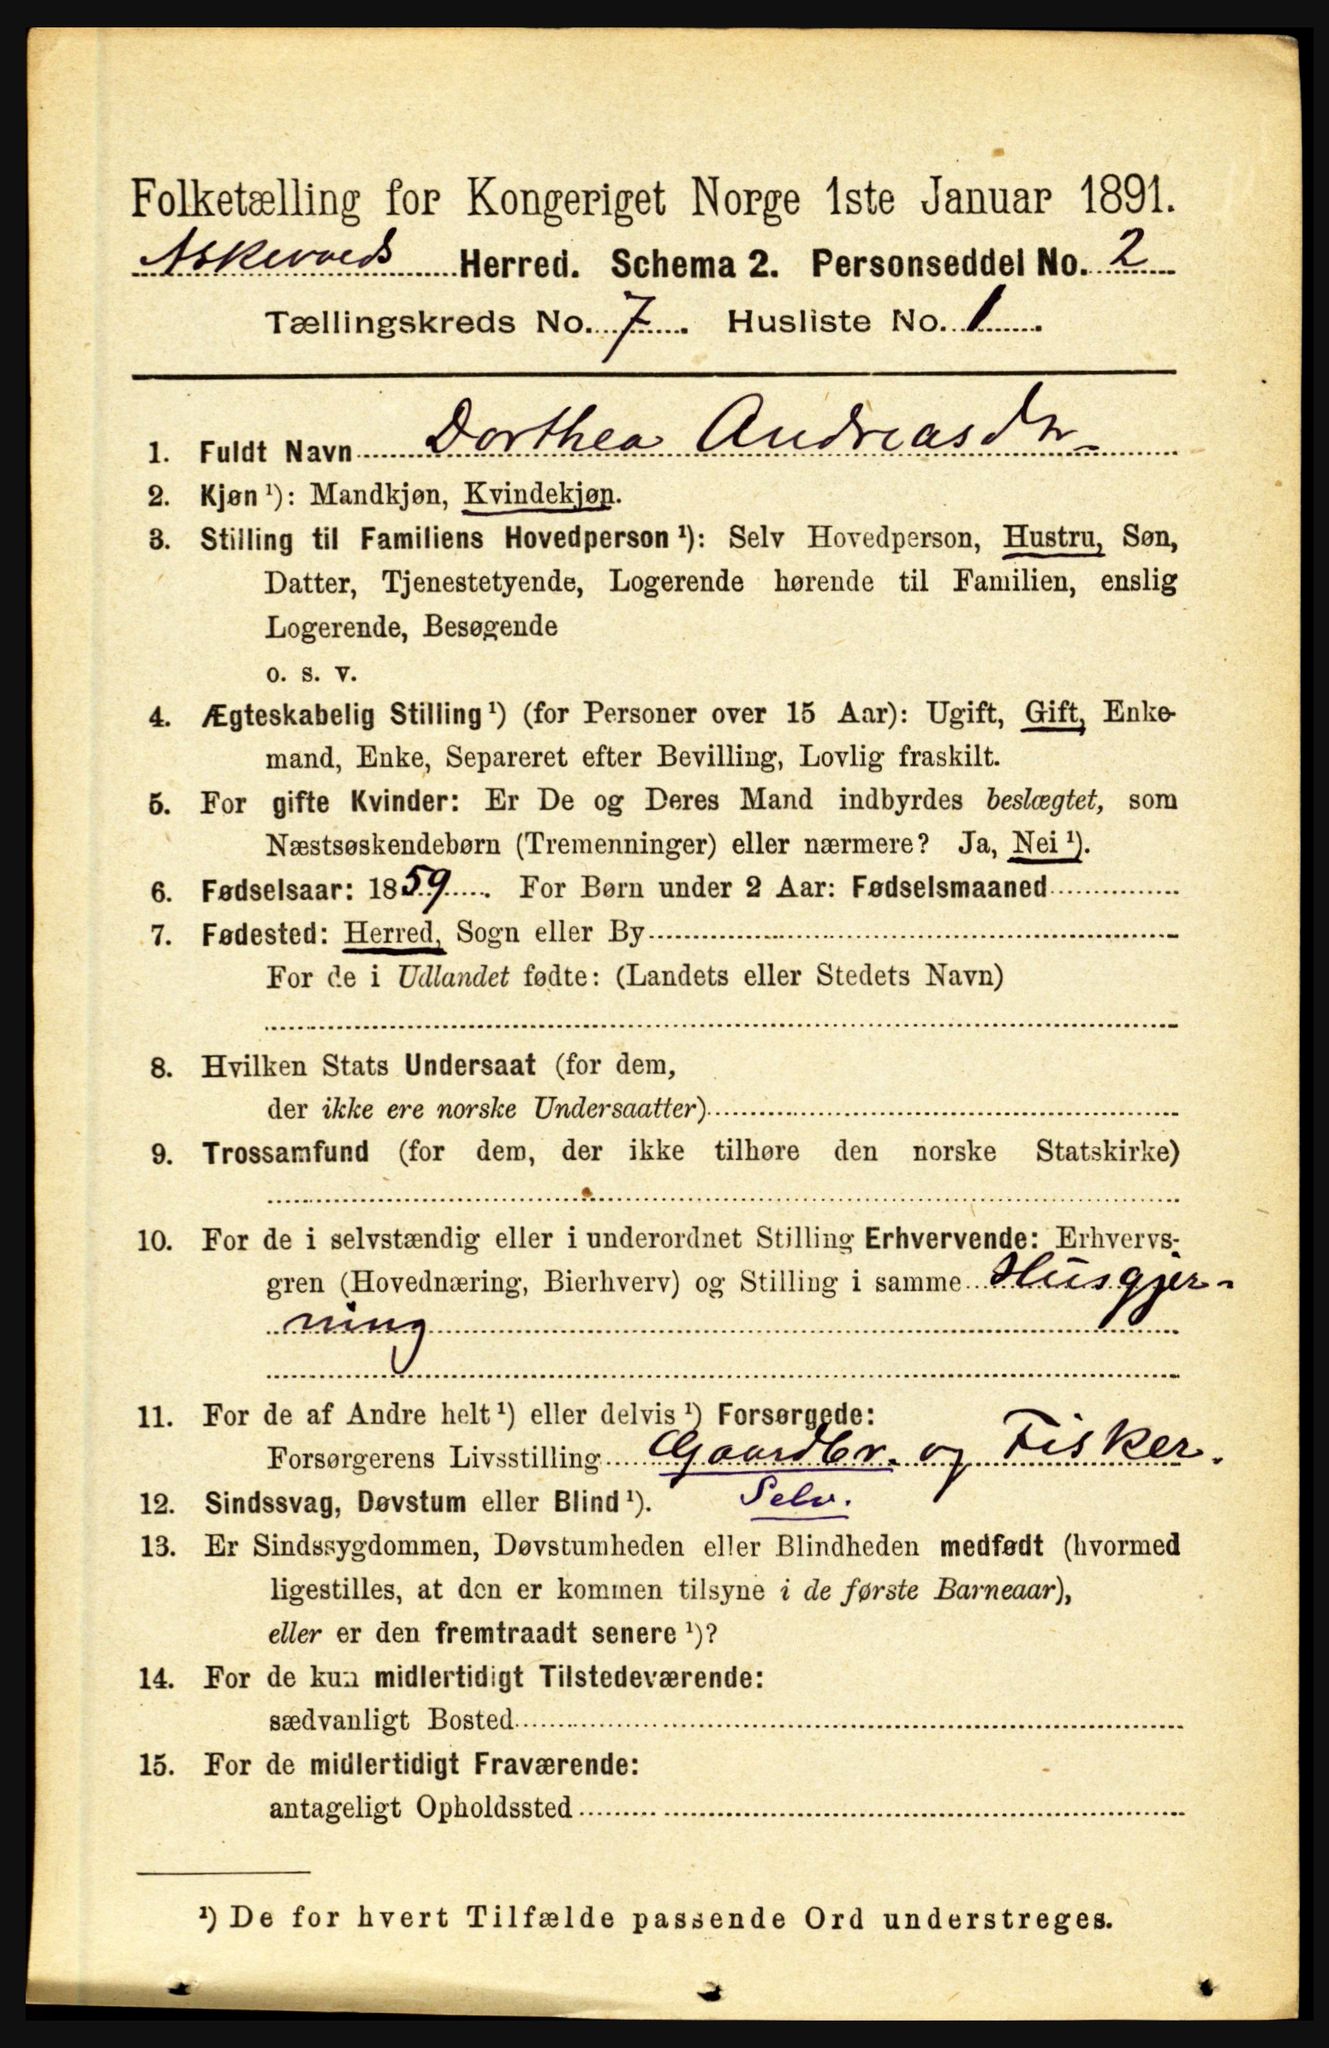 Folketælling for Kongeriget Norge 1ste Januar 1891.
Askevolds Herred. Schema 2. Personseddel No. 2
Tællingskreds No. 7. Husliste No. 1.
1. Fuldt Navn Dorthea Andreasdr
2. Kjøn ¹): Mandkjøn, Kvindekjøn.
3. Stilling til Familiens Hovedperson ¹): Selv Hovedperson, Hustru, Søn,
Datter, Tjenestetyende, Logerende hørende til Familien, enslig
Logerende, Besøgende
o. s. v.
4. Ægteskabelig Stilling ¹) (for Personer over 15 Aar): Ugift, Gift, Enke-
mand, Enke, Separeret efter Bevilling, Lovlig fraskilt.
5. For gifte Kvinder: Er De og Deres Mand indbyrdes beslægtet, som
Næstsøskendebørn (Tremenninger) eller nærmere? Ja, Nei ¹).
6. Fødselsaar: 1859. For Børn under 2 Aar: Fødselsmaaned
7. Fødested: Herred, Sogn eller By
For de i Udlandet fødte: (Landets eller Stedets Navn)
8. Hvilken Stats Undersaat (for dem,
der ikke ere norske Undersaatter)
9. Trossamfund (for dem, der ikke tilhøre den norske Statskirke)
10. For de i selvstændig eller i underordnet Stilling Erhvervende: Erhvervs-
gren (Hovednæring, Bierhverv) og Stilling i samme Husgjer-
ning
11. For de af Andre helt ¹) eller delvis ¹) Forsørgede:
Forsørgerens Livsstilling Gaardbr. og Fisker.
12. Sindssvag, Døvstum eller Blind ¹). Selv.
13. Er Sindssygdommen, Døvstumheden eller Blindheden medfødt (hvormed
ligestilles, at den er kommen tilsyne i de første Barneaar),
eller er den fremtraadt senere ¹)?
14. For de kun midlertidigt Tilstedeværende:
sædvanligt Bosted
15. For de midlertidigt Fraværende:
antageligt Opholdssted
¹) De for hvert Tilfælde passende Ord understreges.